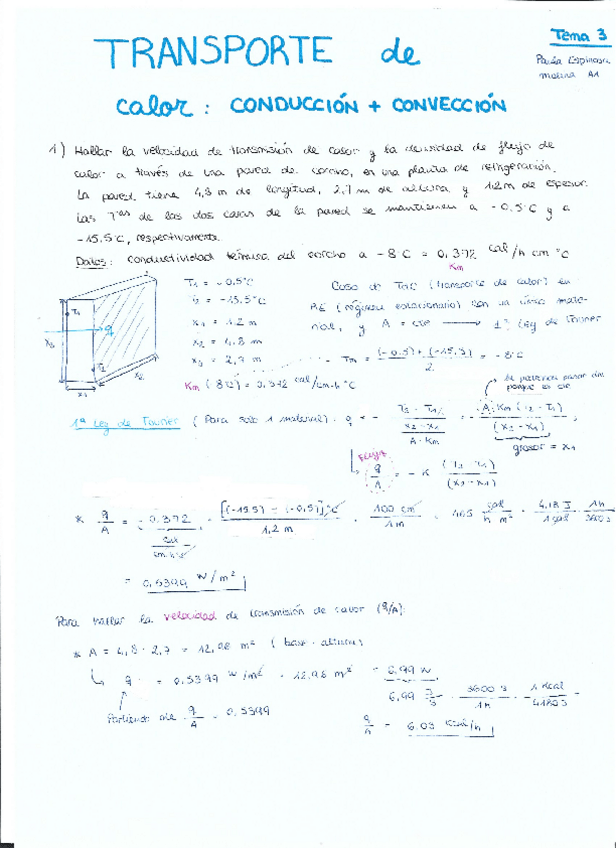 Tema 3
TRANSPORTE de
Paula Espinosa
Molina A1
calor: CONDUCCIÓN + CONVECCIÓN
1) Hallar la velocidad de transmisión de calor y la densidad de flujo de
calor a través de una pared de corcho, en una planta de refrigeración.
La pared tiene 4,8 m de longitud, 2,7 m de altura y 1,2 m de espesor.
Las Tᵃˢ de las dos caras de la pared se mantienen a -0.5°C y a
-15.5°C, respectivamente.
Datos: conductividad térmica del corcho a -8°C = 0,372 cal/h cm °C
Km
T1 = -0.5°C
T2 = -15.5°C
x1 = 1.2 m
x2 = 4.8 m
x3 = 2,7 m
Caso de TdC (transporte de calor) en
RE (régimen estacionario) con un único mate-
rial, y A = cte → 1ª Ley de Fourier
Tm = (-0.5) + (-15.5) / 2 = -8°C
Km (8°C) = 0,372 cal/cm·h°C
x3
x2
x1
T1
q
1ª Ley de Fourier (Para solo 1 material): q = - T2 - T1 / (x2 - x1 / A·Km) = - A·Km (T2 - T1) / (x2 - x1)
porque es cte
grosor = x1
FLUJO
q/A = -K (T2 - T1) / (x2 - x1)
* q/A = -0.372 cal/cm·h·°C · [(-15.5) - (-0,5)]°C / 1,2 m · 100 cm / 1m = 465 cal / h m² · 4,18 J / 1 cal · 1h / 3600 s
= 0,5399 W/m²
Para hallar la velocidad de transmisión de calor (q/A):
* A = 4,8 · 2,7 = 12,96 m² (base · altura)
q = 0,5399 W/m² · 12,96 m² = 6,99 W
Partiendo de q/A = 0,5399
6,99 J/s · 3600 s / 1h · 1 Kcal / 4180 J =
q/A = 6.03 Kcal/h